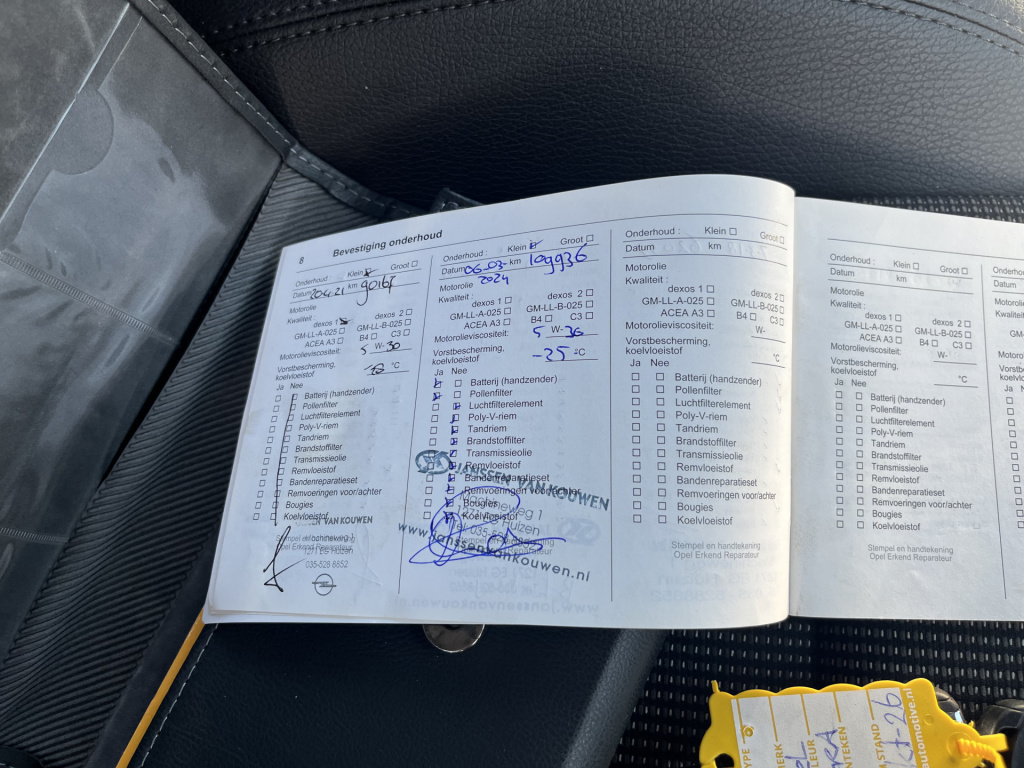 8 Bevestiging onderhoud
Onderhoud : Klein Groot
Datum 20.4.21 km
Motorolie
Kwaliteit : dexos 1 dexos 2
GM-LL-A-025 GM-LL-B-025
ACEA A3 B4 C3
Motorolieviscositeit: 5 W-30
Vorstbescherming,
koelvloeistof °C
Ja Nee
Batterij (handzender)
Pollenfilter
Luchtfilterelement
Poly-V-riem
Tandriem
Brandstoffilter
Transmissieolie
Remvloeistof
Bandenreparatieset
Remvoeringen voor/achter
Bougies
Koelvloeistof
VAN KOUWEN
Stempel en handtekening
Opel Erkend Reparateur
035-528 6852
Onderhoud : Klein Groot
Datum 06-03- km 109936
2024
Motorolie
Kwaliteit : dexos 1 dexos 2
GM-LL-A-025 GM-LL-B-025
ACEA A3 B4 C3
Motorolieviscositeit: 5 W-30
Vorstbescherming,
koelvloeistof -25 °C
Ja Nee
Batterij (handzender)
Pollenfilter
Luchtfilterelement
Poly-V-riem
Tandriem
Brandstoffilter
Transmissieolie
Remvloeistof
Bandenreparatieset
Remvoeringen voor/achter
Bougies
Koelvloeistof
JANSSEN VAN KOUWEN
Machineweg 1
Huizen
Tel. 035-
www.janssenvankouwen.nl
Stempel en handtekening
Opel Erkend Reparateur
Onderhoud : Klein Groot
Datum km
Motorolie
Kwaliteit : dexos 1 dexos 2
GM-LL-A-025 GM-LL-B-025
ACEA A3 B4 C3
Motorolieviscositeit: W-
Vorstbescherming,
koelvloeistof °C
Ja Nee
Batterij (handzender)
Pollenfilter
Luchtfilterelement
Poly-V-riem
Tandriem
Brandstoffilter
Transmissieolie
Remvloeistof
Bandenreparatieset
Remvoeringen voor/achter
Bougies
Koelvloeistof
Stempel en handtekening
Opel Erkend Reparateur
Onderhoud : Klein Groot
Datum km
Motorolie
Kwaliteit : dexos 1 dexos 2
GM-LL-A-025 GM-LL-B-025
ACEA A3 B4 C3
Motorolieviscositeit: W-
Vorstbescherming,
koelvloeistof °C
Ja Nee
Batterij (handzender)
Pollenfilter
Luchtfilterelement
Poly-V-riem
Tandriem
Brandstoffilter
Transmissieolie
Remvloeistof
Bandenreparatieset
Remvoeringen voor/achter
Bougies
Koelvloeistof
Stempel en handtekening
Opel Erkend Reparateur
automotive.nl